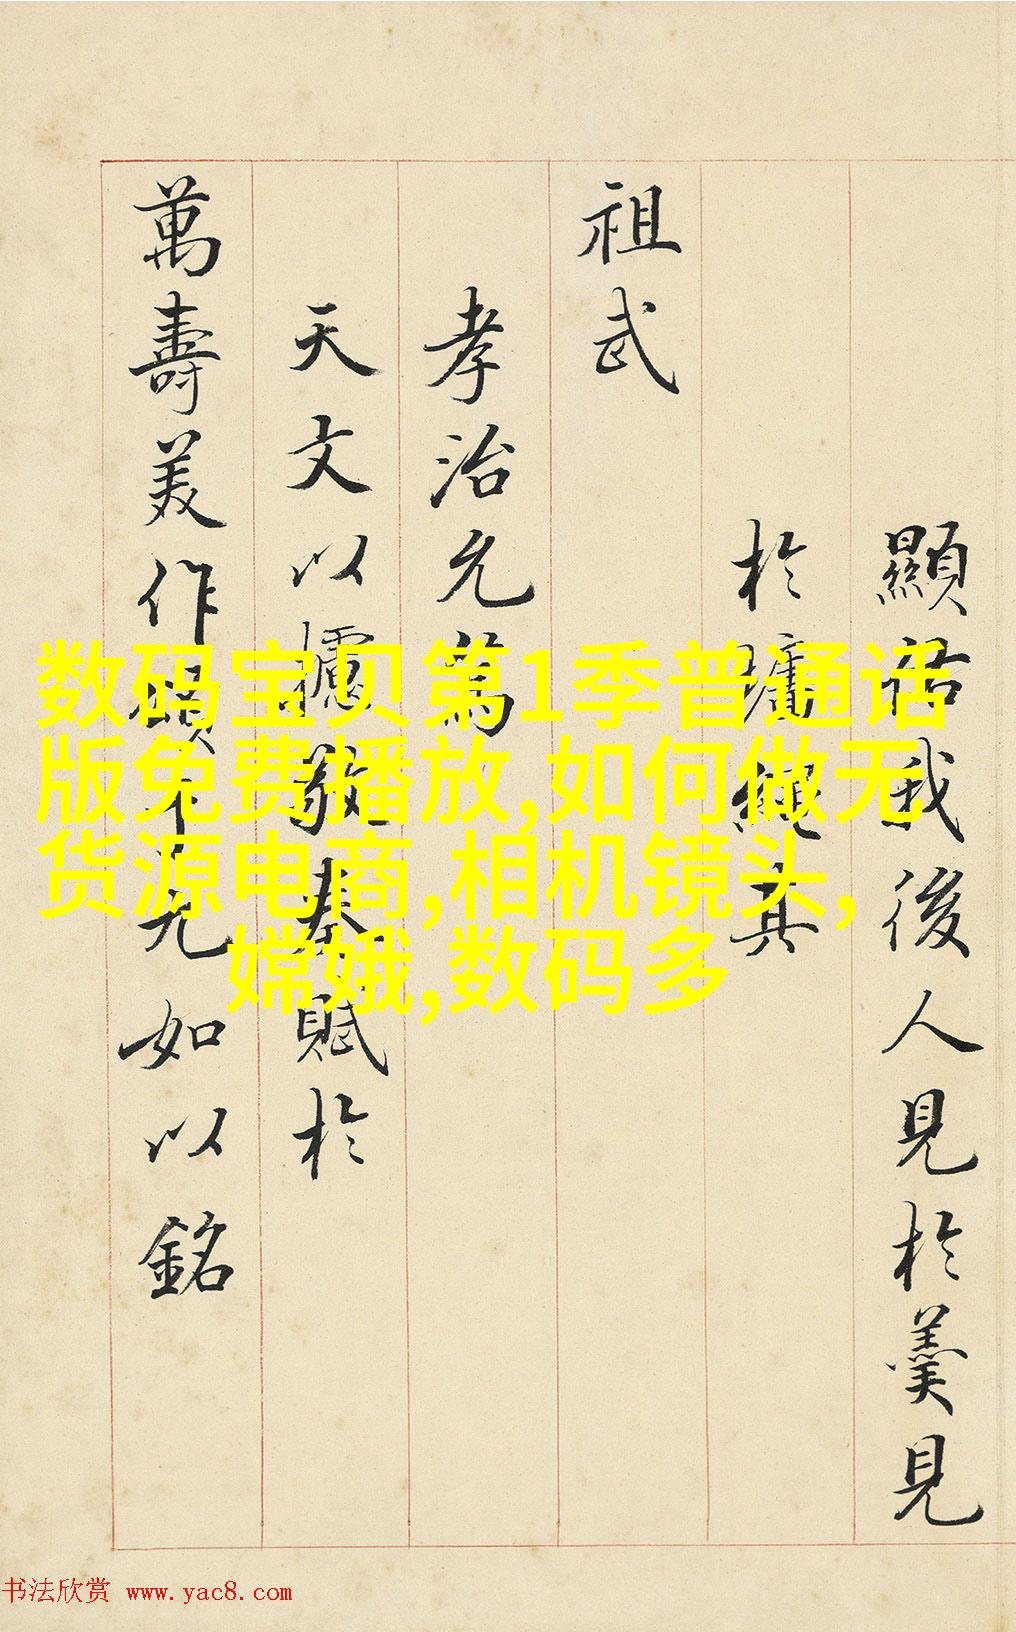 顯祐我後人見於羹見
於墻繩其
祖武
孝治允篤
天文以攄敬奏賦於
萬壽美作頌十九如以銘
数码宝贝第1季普通话
版免费播放,如何做无
货源电商,相机镜头,
嫦娥,数码多
书法欣赏 www.yac8.com